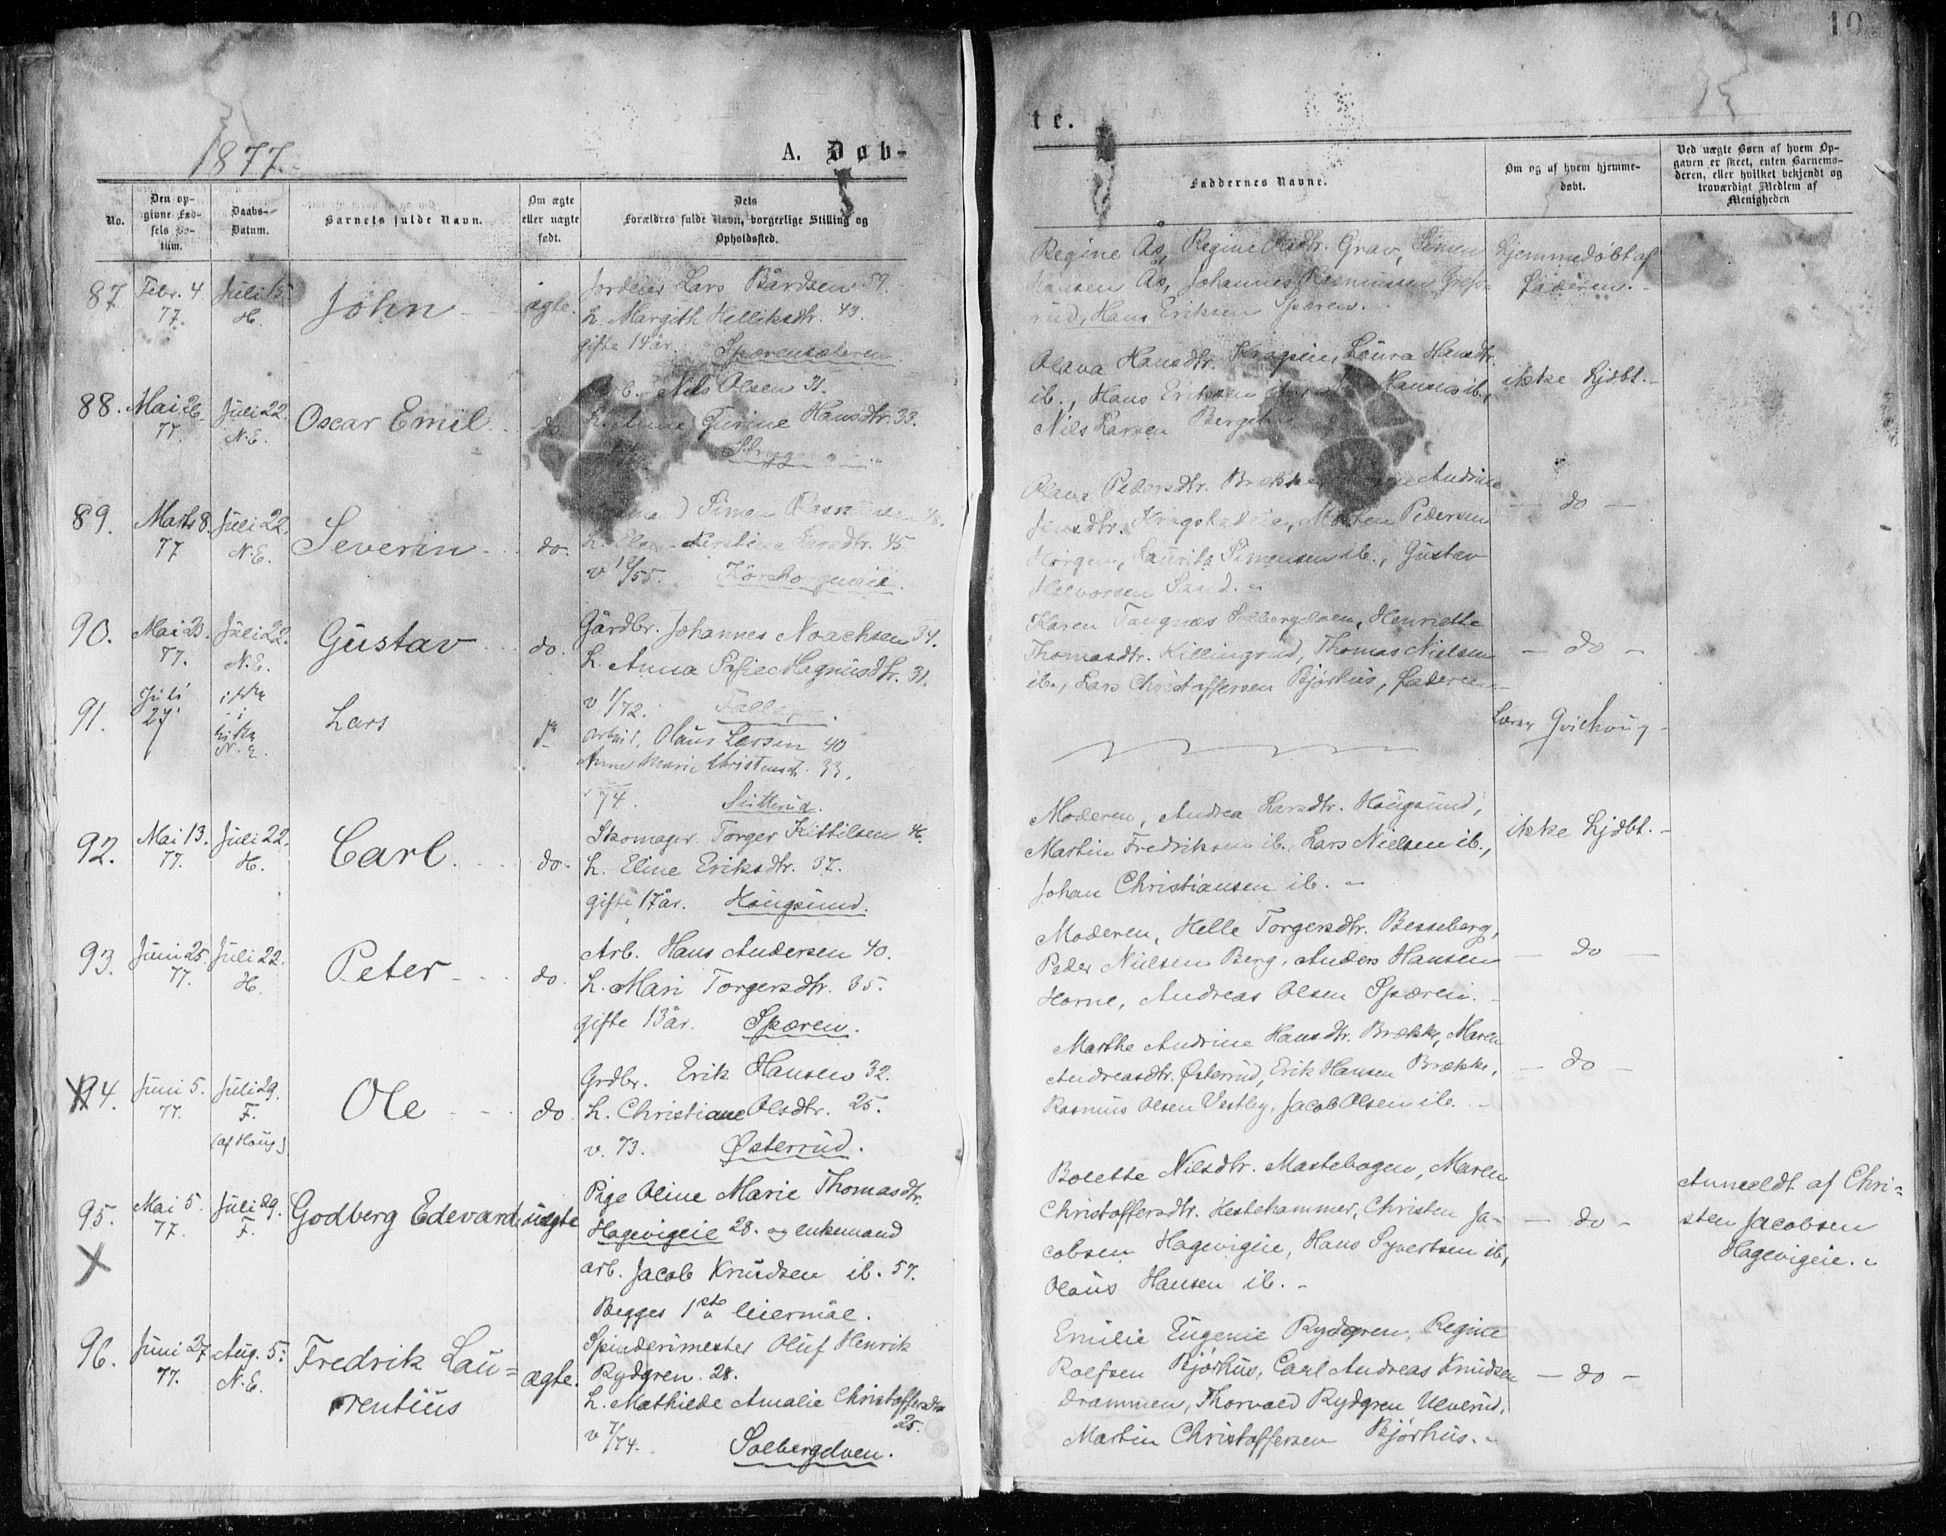 10
1877.
A. Døb-
te.
No.
Den op-
givne Fød-
sels Da-
tum.
Daabs-
Datum.
Barnets fulde Navn.
Om ægte
eller uægte
født.
Dets
Forældres fulde Navn, borgerlige Stilling og
Opholdssted.
Faddernes Navne.
Om og af hvem hjemme-
døbt.
Ved uægte Børn af hvem Op-
gaven er skeet, enten Barnemo-
deren, eller hvilket bekjendt og
troværdigt Medlem af
Menigheden
87.
Febr. 4
77.
Juli 15
H.
John
ægte.
Jordeier Lars Bårdsen 59.
h. Margith Helliksdtr. 43.
gifte 14 år. Spærensæteren.
Regine Ås, Regine Grav, Simen
Hansen Ås, Johannes Rasmussen
rud, Hans Eriksen Spæren.
hjemmedøbt af
Faderen.
88.
Mai 26
77.
Juli 22.
N.E.
Oscar Emil
do
Arb. Nils Olsen 31.
h. Anne Gurine Hansdtr. 33.
Olava Hansdtr. Laura Hansdtr.
ib., Hans Eriksen Hansen ib.,
Nils Larsen
ikke hjdbt.
89.
Marts 8.
77
Juli 22.
N.E.
Severin
do.
Simen
h. Kirstine 45
v 12/55.
Olava Pedersdtr. Andrine
Jensdtr. Morten Pedersen
Horgen, Laurits Simensen ib., Gustav
Halvorsen Sand.
— do —
90.
Mai 23.
77.
Juli 22.
N.E.
Gustav
do.
Gårdbr. Johannes Noachsen 34.
h. Anna Sofie Magnusdtr. 31.
v 1/72.
Karen Tangnæs Solbergelven, Henriette
Thomasdtr. Killingrud, Thomas Nielsen
ib., Lars Christoffersen Bjørhus, Faderen
— do —
91.
Juli
27
ikke
N.E.
Lars
Arbeid. Olaus Larsen 40
Anne Marie 33.
74. Skitterud.
Lærer
92.
Mai 13.
77.
Juli 22.
H.
Carl.
do.
Skomager Torger Kittilsen 46.
h. Eline Eriksdtr. 37.
gifte 17 år. Hougsund.
Moderen, Andrea Larsdtr. Hougsund,
Martin Fredriksen ib., Lars Nielsen ib.,
Johan Christiansen ib.
ikke hjdbt.
93.
Juni 25.
77.
Juli 22.
H.
Peter
do.
Arb. Hans Andersen 40.
h. Mari Torgersdtr. 35.
gifte 13 år. Spæren.
Moderen, Helle Torgersdtr. Besseberg,
Peder Nielsen Berg, Anders Hansen
Horne, Andreas Olsen Spæren.
— do —
94.
Juni 5.
77.
Juli 29.
F.
(af Houg)
Ole
do.
Grdbr. Erik Hansen 32.
h. Christiane Olsdtr. 25.
v. 73. Østerrud.
Marthe Andrine Hansdtr. Brække, Maren
Andreasdtr. Østerrud, Erik Hansen Brække,
Rasmus Olsen Vestby, Jacob Olsen ib.
— do —
95.
X
Mai 5.
77.
Juli 29.
F.
Godberg Edevard
uægte
Pige Oline Marie Thomasdtr.
Hagevigeie 28. og enkemand
arb. Jacob Knudsen ib. 57.
Begges 1ste leiermål.
Bolette Nilsdtr. Mastebogen, Maren
Christoffersdtr. Hestehammer, Christen Ja-
cobsen Hagevigeie, Hans Syvertsen ib,
Olaus Hansen ib.
— do —
Anmeldt af Chri-
sten Jacobsen
Hagevigeie.
96.
Juni 27
77.
Aug. 5.
N.E.
Fredrik Lau-
rentius
ægte.
Spinderimester Oluf Henrik
Rydgren. 28.
h. Mathilde Amalie Christoffersdtr.
25.
v 7/74. Solbergelven.
Emilie Eugenie Rydgren, Regine
Rolfsen Bjørhus, Carl Andreas Knudsen
Drammen, Thorvald Rydgren Ulverud,
Martin Christoffersen Bjørhus.
— do —